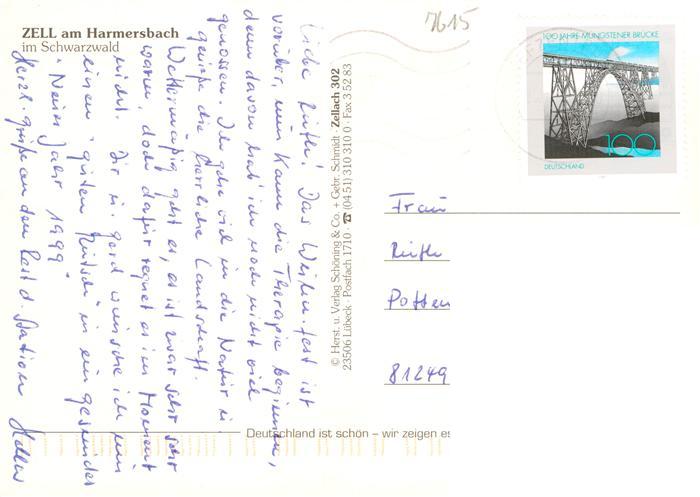 ZELL am Harmersbach
im Schwarzwald
Liebe Ruth! Das Weihn.fest ist
vorüber, nun kann die Therapie beginnen,
denn davon hab' ich noch nicht viel
genossen. Ich gehe viel in die Natur u.
genieße die herrliche Landschaft.
Wettermäßig geht es, es ist zwar sehr
warm, doch dafür regnet es im Moment
nicht. Dir u. Gerd wünsche ich nun
einen "guten Rutsch" in ein gesundes
"Neues Jahr 1999"
Herzl. Grüße an den Rest d. Station
© Herst. u. Verlag Schöning & Co. + Gebr. Schmidt · Zellach 302
23506 Lübeck · Postfach 1710 · ☎ (04 51) 310 310 0 · Fax 3 52 83
7615
100 JAHRE MÜNGSTENER BRÜCKE
100
DEUTSCHLAND
Frau
Ruth
Potten
81249
Deutschland ist schön – wir zeigen es